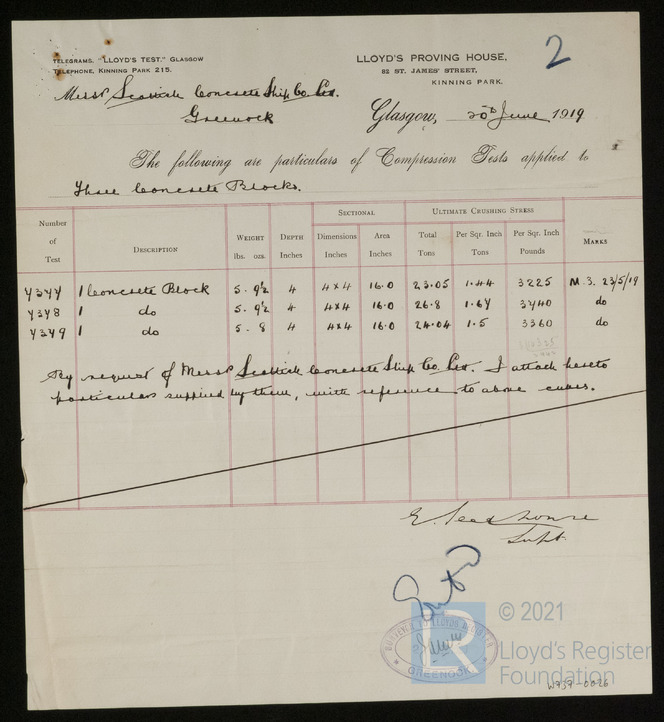 TELEGRAMS, "LLOYD'S TEST." GLASGOW
TELEPHONE, KINNING PARK 215.
LLOYD'S PROVING HOUSE,
82 ST. JAMES' STREET,
KINNING PARK.
2
Messrs Scottish Concrete Ship Co. Ltd.
Greenock
Glasgow, 20th June 1919
The following are particulars of Compression Tests applied to
Three Concrete Blocks.
Number of Test DESCRIPTION WEIGHT lbs. ozs. DEPTH Inches SECTIONAL Dimensions Inches Area Inches ULTIMATE CRUSHING STRESS Total Tons Per Sq. Inch Tons Per Sq. Inch Pounds MARKS
1 Concrete Block 5. 9½ 4 4x4 16.0 23.05 1.44 3225 M.3. 23/5/19
1 do 5. 9½ 4 4x4 16.0 26.8 1.67 3740 do
1 do 5. 8 4 4x4 16.0 24.04 1.5 3360 do
By request of Messrs Scottish Concrete Ship Co. Ltd. I attach hereto
particulars supplied by them, with reference to above cubes.
Supt.
SURVEYOR TO LLOYDS REGISTER
GREENOCK
LR
© 2021
Lloyd's Register
Foundation
W939-0026